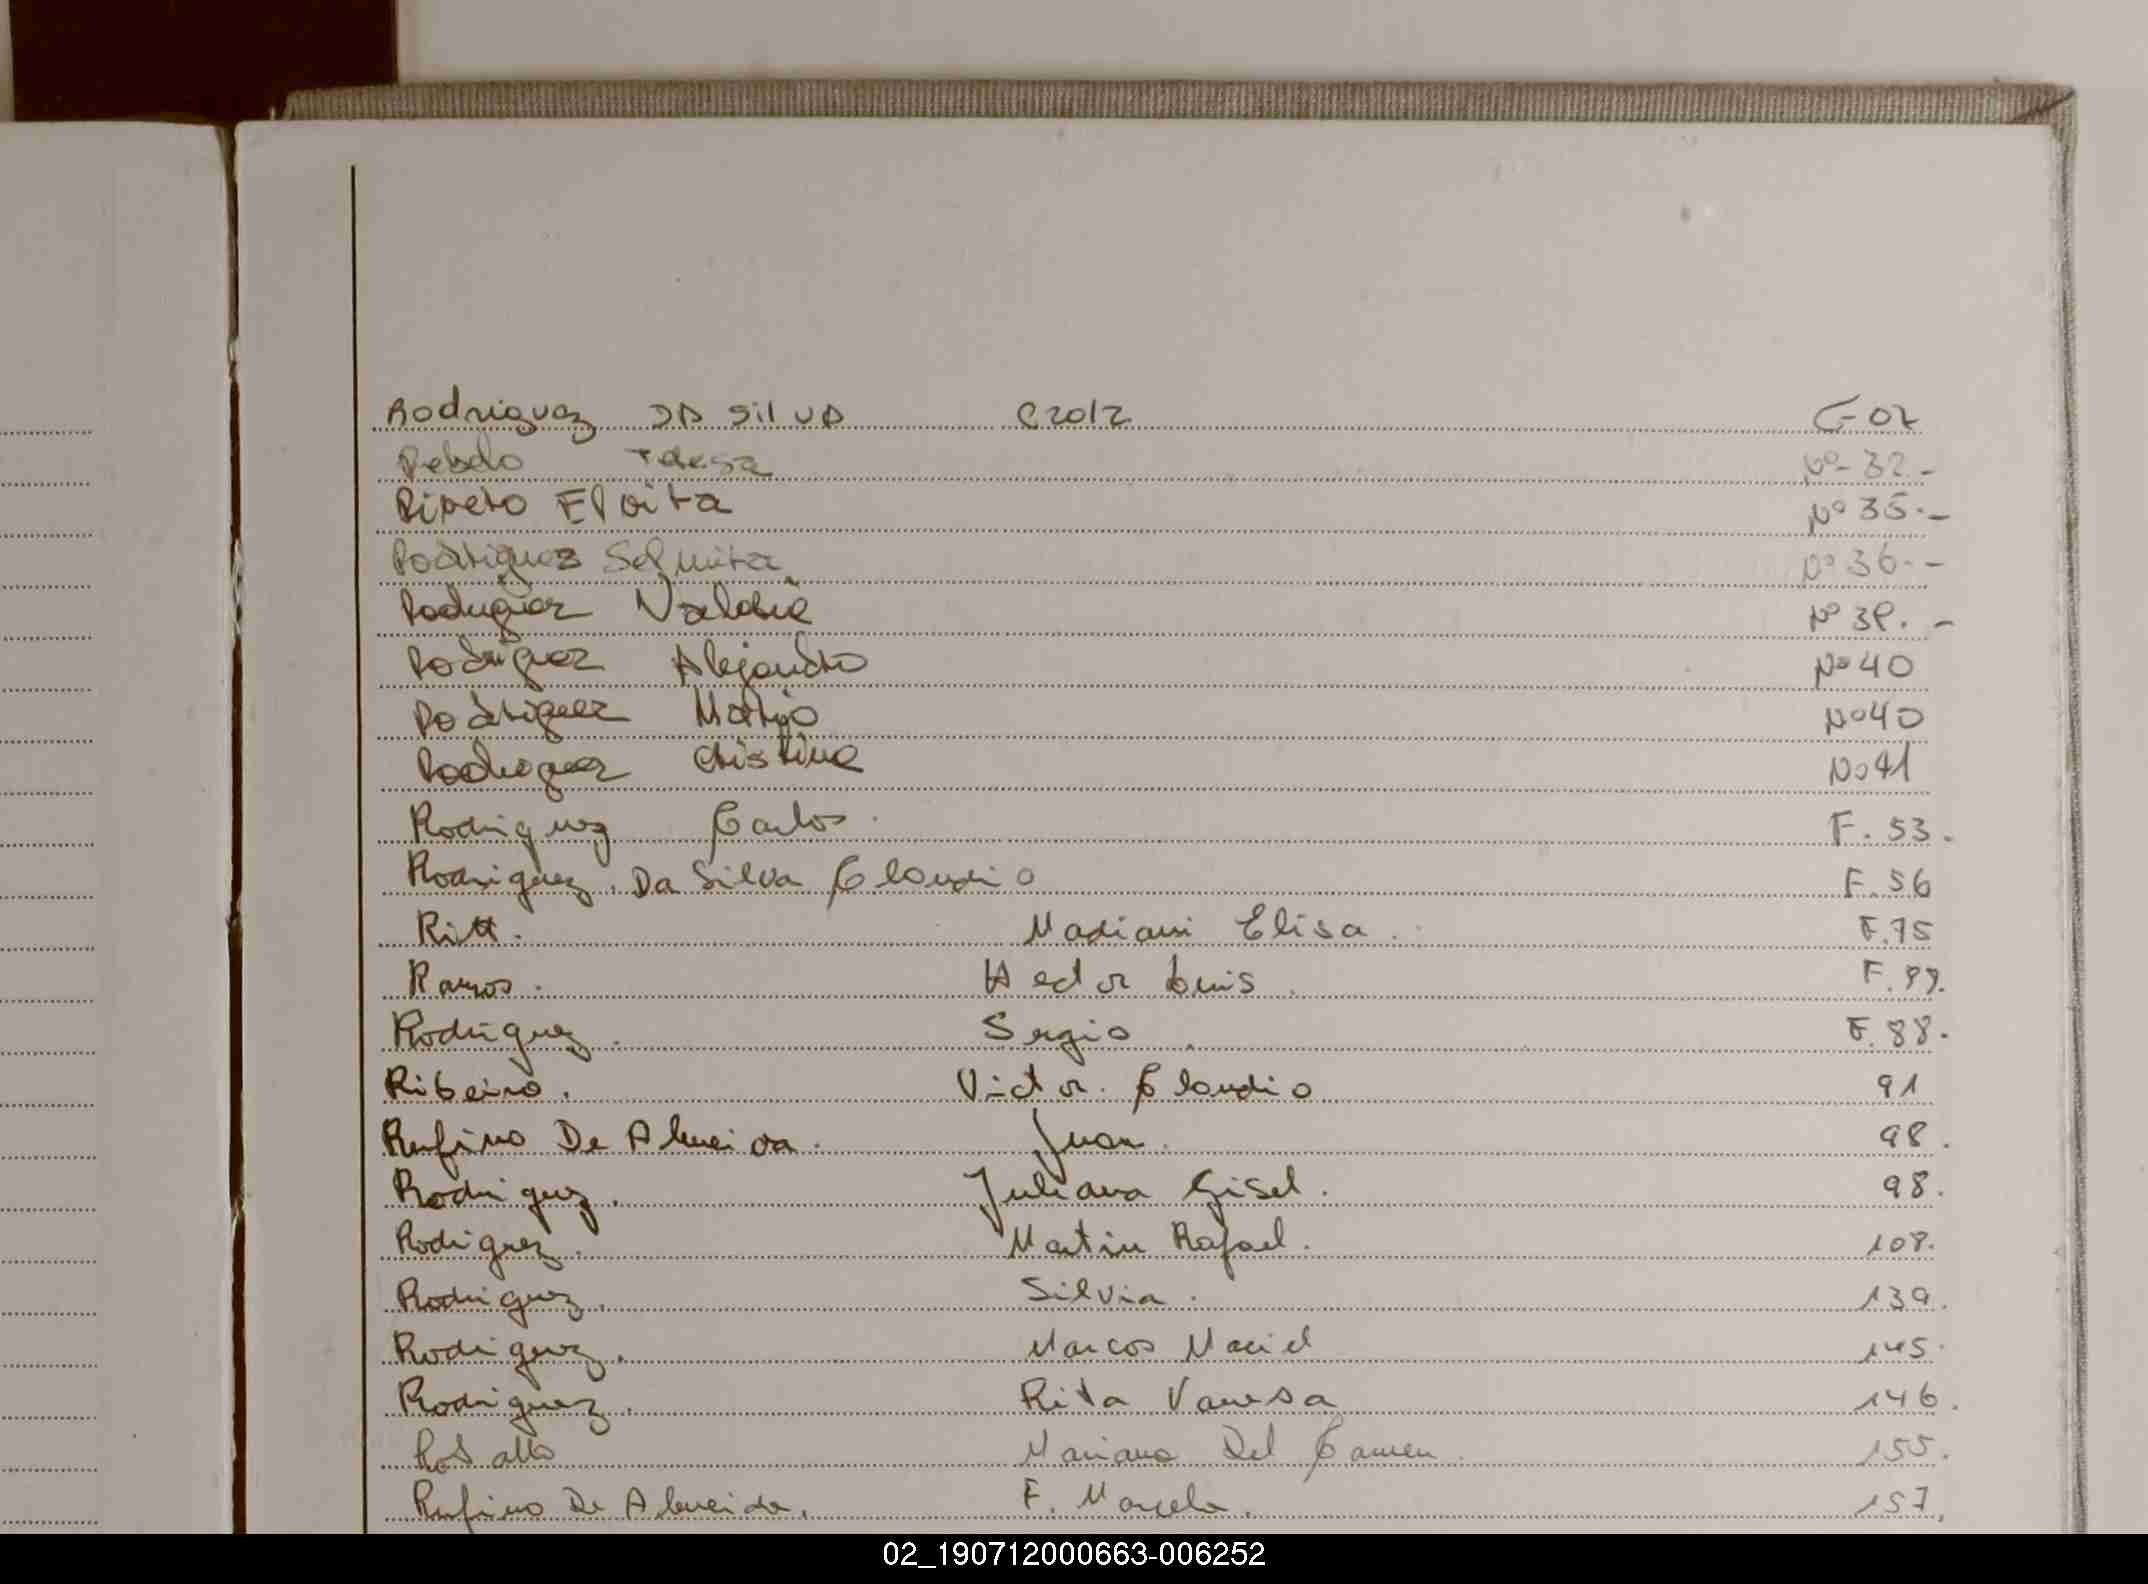 Rodriguez DA SilVA F-02
Rebelo Teresa Nº-32.-
Ripeto Nº 35.-
Rodriguez Nº 36.-
Rodriguez Nº 38.-
Rodriguez Alejandro Nº 40
Rodriguez Nº 40
Rodriguez Cristina Nº 41
Rodriguez Carlos. F. 53.
Rodriguez. Da Silva Claudio F. 56
Ritt. Madiani Elisa. F. 75
Ramos. Hector Luis.
Rodriguez. Sergio. F. 88.
Ribeiro. Victor. Claudio 91
Rufino De Almeida. Juan. 98.
Rodriguez. Juliana Gisel. 98.
Rodriguez. Martin Rafael. 108.
Rodriguez. Silvia. 139.
Rodriguez. Marcos Maciel 145.
Rodriguez. Rita Vanesa 146.
Mariana Del Carmen. 155.
Rufino De Almeida. F. Marcela. 157.
02_190712000663-006252